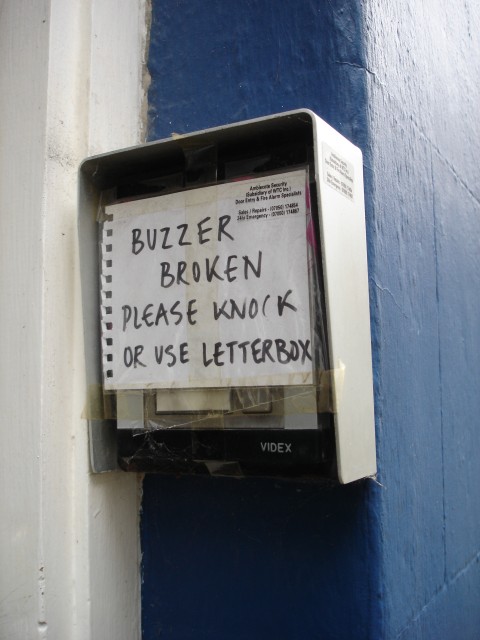 Ambiente Security
(Subsidiary of WTC Inc.)
Door Entry & Fire Alarm Specialists
Sales / Repairs - (07050) 174654
24hr Emergency - (07050) 174667
BUZZER
BROKEN
PLEASE KNOCK
OR USE LETTERBOX
VIDEX